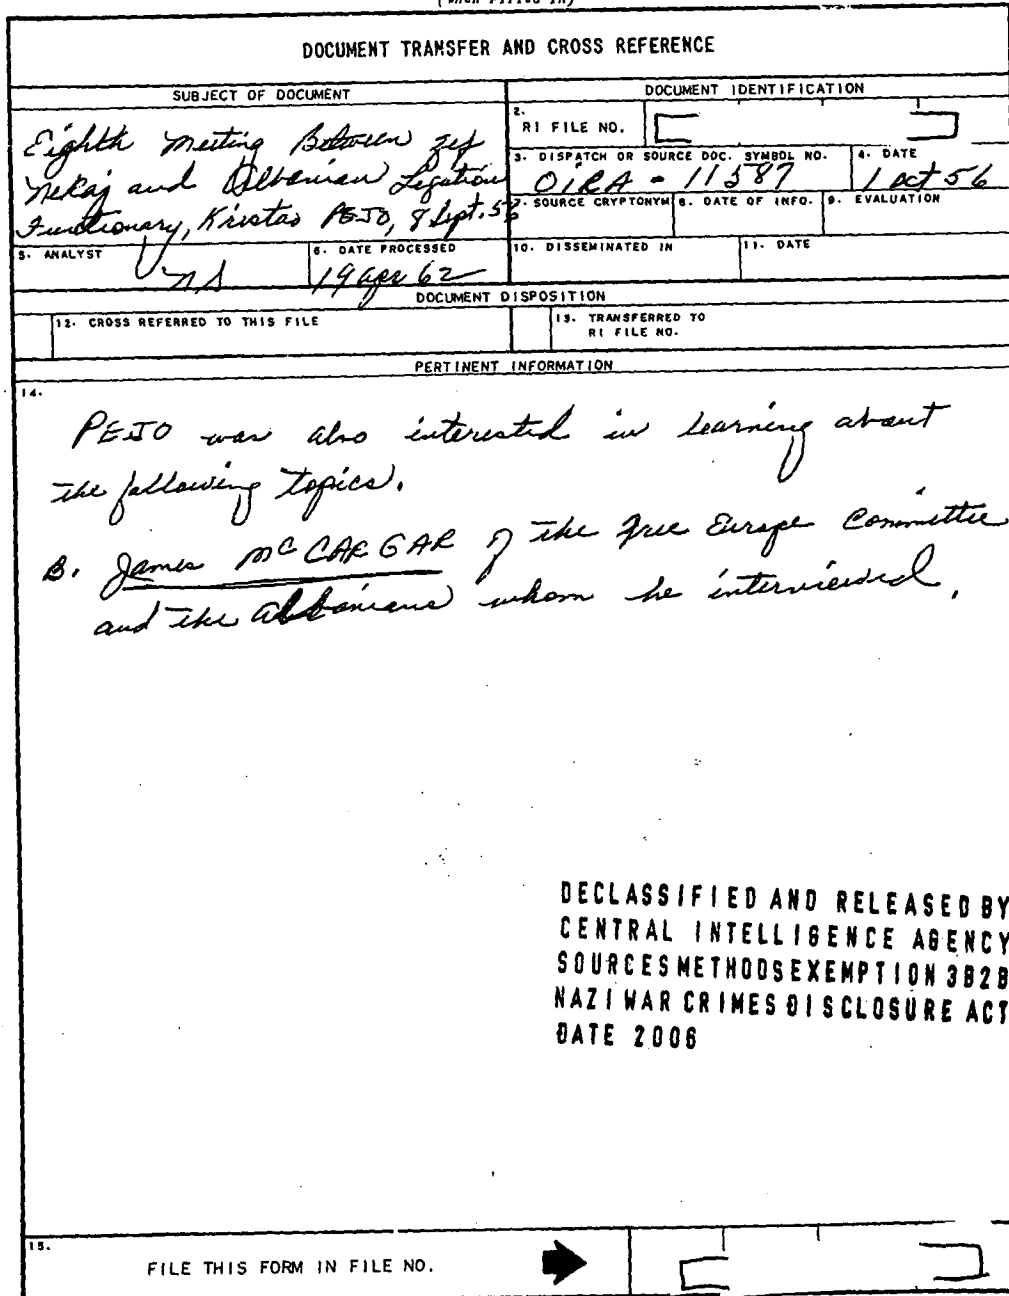 (When Filled In)
DOCUMENT TRANSFER AND CROSS REFERENCE
SUBJECT OF DOCUMENT
Eighth Meeting Between Zef
Nekaj and Albanian Legation
Functionary, Kristas PEJO, 8 Sept. 56
5. ANALYST
6. DATE PROCESSED
19 Apr 62
DOCUMENT IDENTIFICATION
2.
RI FILE NO.
3. DISPATCH OR SOURCE DOC. SYMBOL NO.
OIRA - 11587
4. DATE
1 Oct 56
7. SOURCE CRYPTONYM
8. DATE OF INFO.
9. EVALUATION
10. DISSEMINATED IN
11. DATE
DOCUMENT DISPOSITION
12. CROSS REFERRED TO THIS FILE
13. TRANSFERRED TO
RI FILE NO.
PERTINENT INFORMATION
14.
PEJO was also interested in learning about
the following topics.
B. James McCARGAR of the Free Europe Committee
and the Albanians whom he interviewed.
DECLASSIFIED AND RELEASED BY
CENTRAL INTELLIGENCE AGENCY
SOURCES METHODS EXEMPTION 3B2B
NAZI WAR CRIMES DISCLOSURE ACT
DATE 2006
15.
FILE THIS FORM IN FILE NO.